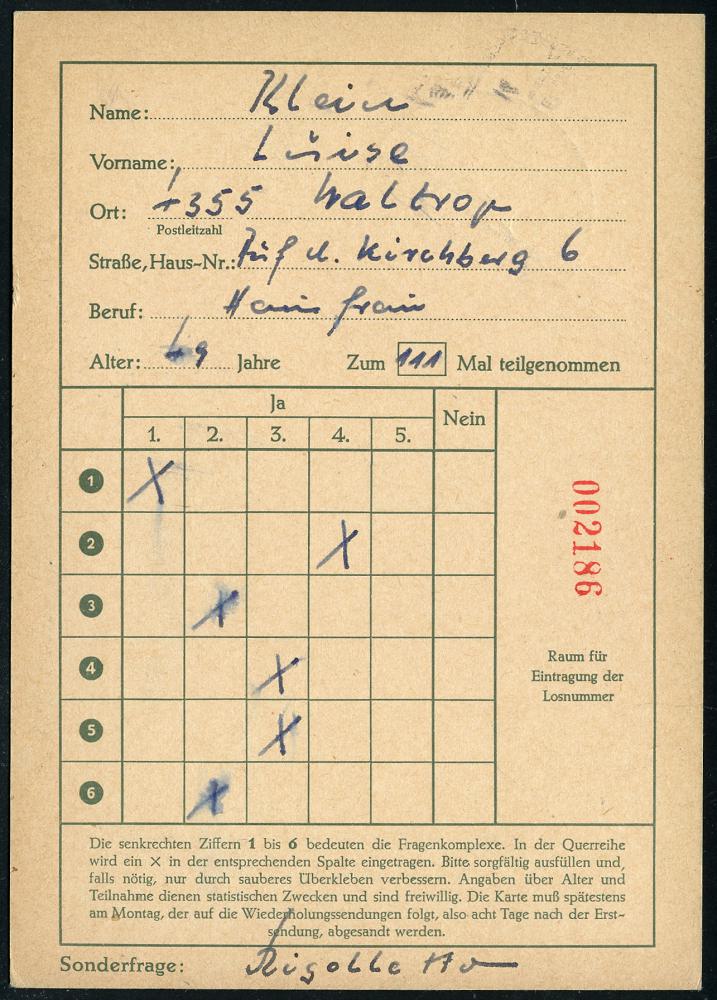 Name: Klein
Vorname: Luise
Ort: 4355 Waltrop
Postleitzahl
Straße, Haus-Nr.: Auf d. Kirchberg 6
Beruf: Hausfrau
Alter: 49 Jahre Zum 111 Mal teilgenommen
Ja Nein
1. 2. 3. 4. 5.
1 X
2 X
3 X
4 X
5 X
6 X
002186
Raum für
Eintragung der
Losnummer
Die senkrechten Ziffern 1 bis 6 bedeuten die Fragenkomplexe. In der Querreihe
wird ein × in der entsprechenden Spalte eingetragen. Bitte sorgfältig ausfüllen und,
falls nötig, nur durch sauberes Überkleben verbessern. Angaben über Alter und
Teilnahme dienen statistischen Zwecken und sind freiwillig. Die Karte muß spätestens
am Montag, der auf die Wiederholungssendungen folgt, also acht Tage nach der Erst-
sendung, abgesandt werden.
Sonderfrage: Rigoletto